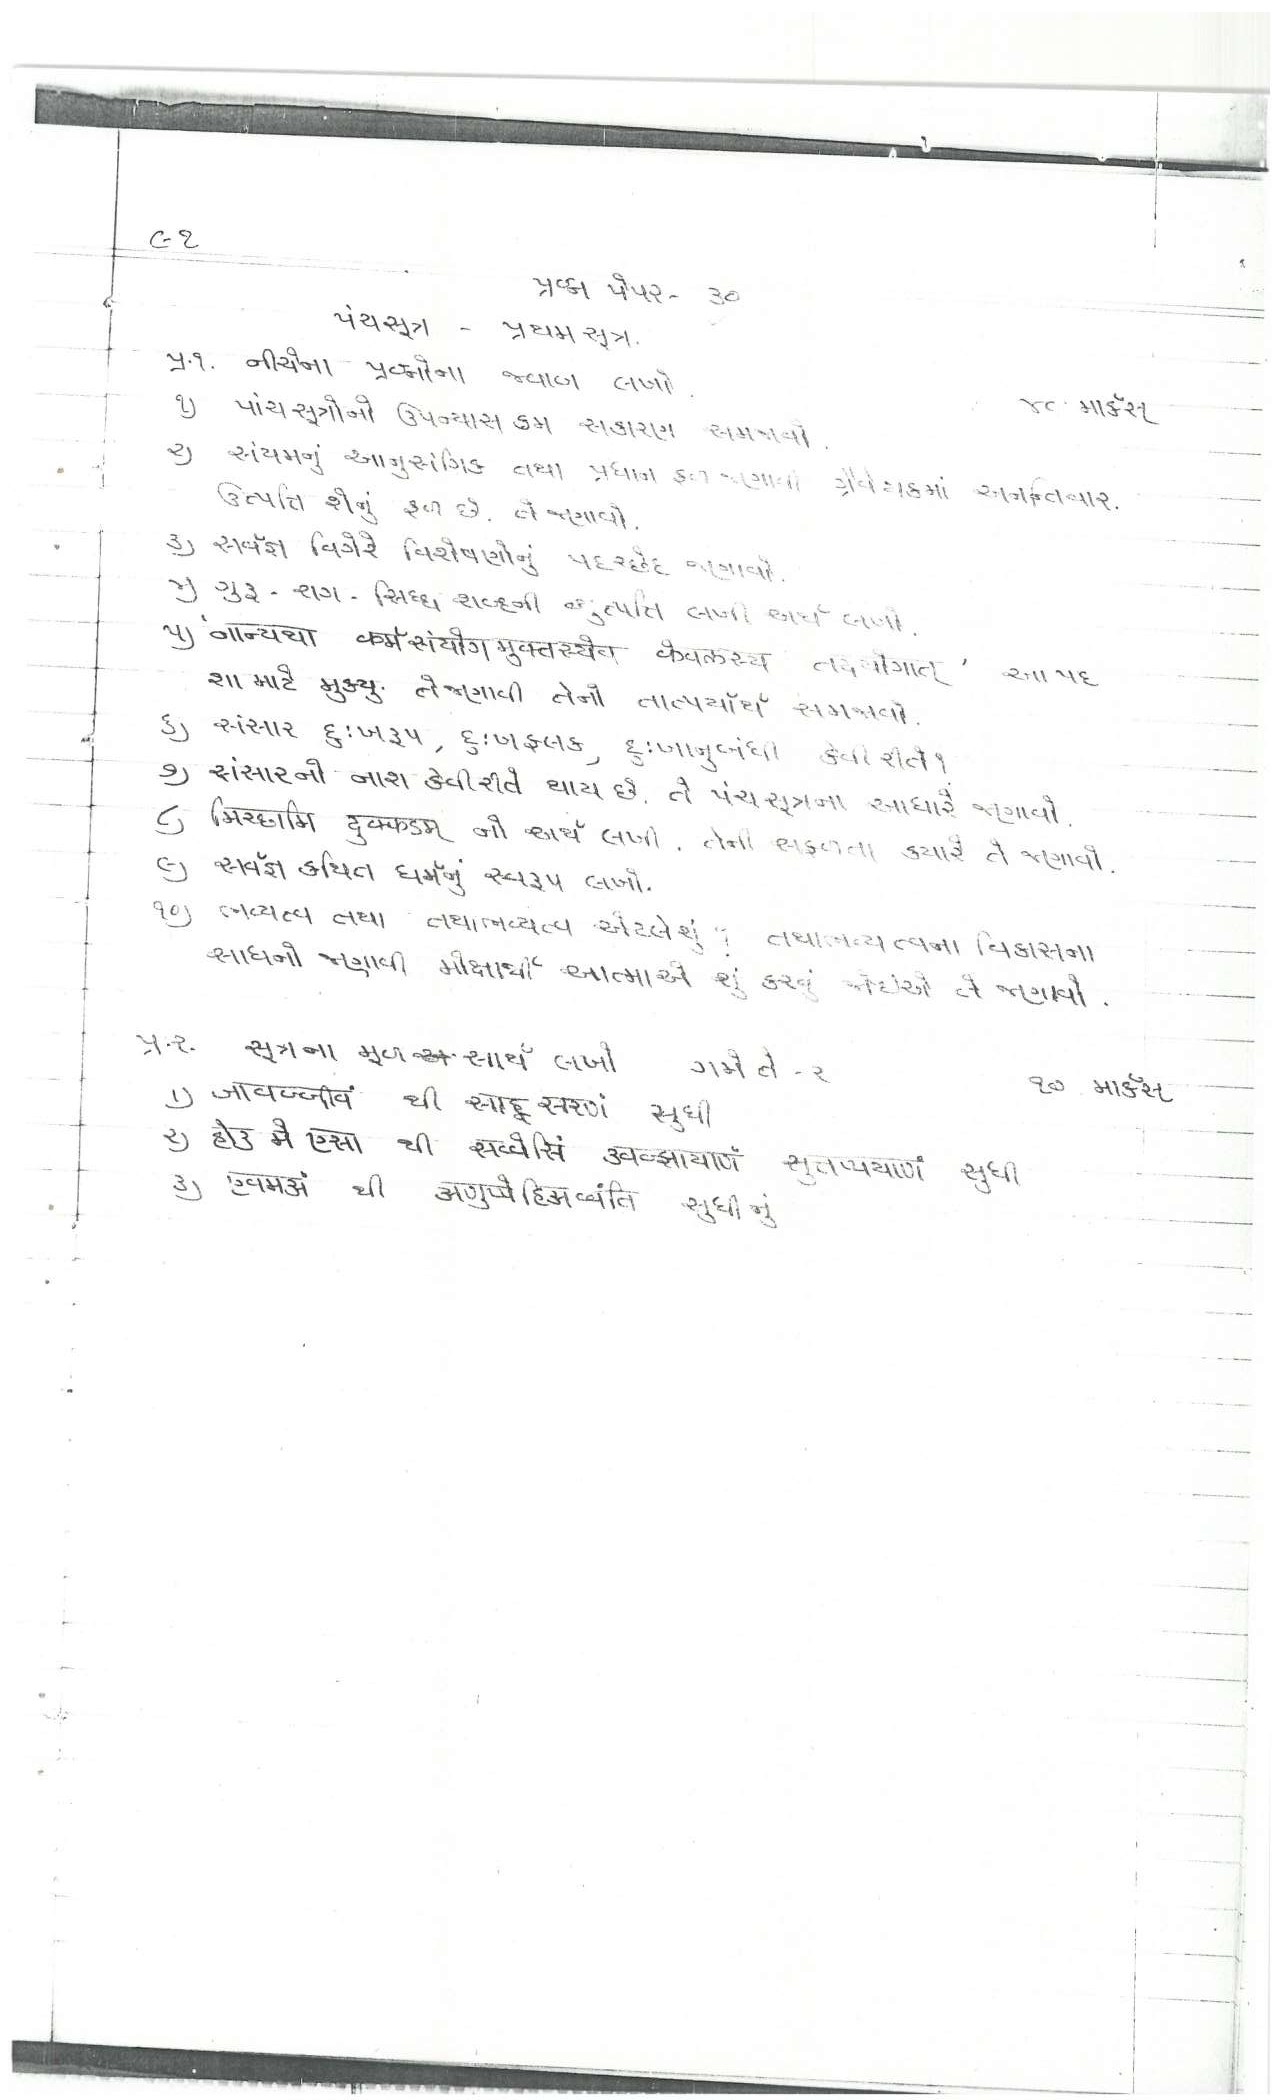 ૯-૨
પ્રશ્ન પેપર- ૩૦
પંચસૂત્ર - પ્રથમસૂત્ર.
પ્ર.૧. નીચેના પ્રશ્નોના જવાબ લખો.
૪૮ માર્કસ
૧) પાંચસૂત્રોનો ઉપન્યાસ ક્રમ સકારણ સમજાવો.
૨) સંયમનું આનુસંગિક તથા પ્રધાન ફળ જણાવી ગ્રૈવેયકમાં અનન્તિવાર.
ઉત્પત્તિ શેનું ફળ છે. તે જણાવો.
૩) સર્વજ્ઞ વિગેરે વિશેષણોનું પદચ્છેદ જણાવો.
૪) ગુરૂ - રાગ - સિધ્ધ શબ્દની વ્યુત્પત્તિ લખી અર્થ લખો.
૫) 'नान्यथा कर्मसंयोगमुक्तस्येव केवलस्य तदयोगात्' આ પદ
શા માટે મુક્યુ. તે જણાવી તેનો તાત્પર્યાર્થ સમજાવો.
૬) સંસાર દુઃખરૂપ, દુઃખફલક, દુઃખાનુબંધી કેવી રીતે?
૭) સંસારનો નાશ કેવી રીતે થાય છે. તે પંચસૂત્રના આધારે જણાવો.
૮) मिच्छामि दुक्कडम् નો અર્થ લખી. તેની સફળતા કયારે તે જણાવો.
૯) સર્વજ્ઞ કથિત ધર્મનું સ્વરૂપ લખો.
૧૦) ભવ્યત્વ તથા તથાભવ્યત્વ એટલે શું? તથાભવ્યત્વના વિકાસના
સાધનો જણાવી મોક્ષાર્થી આત્માએ શું કરવું જોઈએ તે જણાવો.
પ્ર.૨. સૂત્રના મૂળ સાર્થ લખો ગમે તે - ૨
૧૦ માર્કસ
૧) जावज्जीवं થી साहू सरणं સુધી
૨) होउ मे एसा થી सव्वेसिं उवज्झायाणं सुत्तप्पयाणं સુધી
૩) एवमअं થી अणुप्पेहिअव्वंति સુધીનું